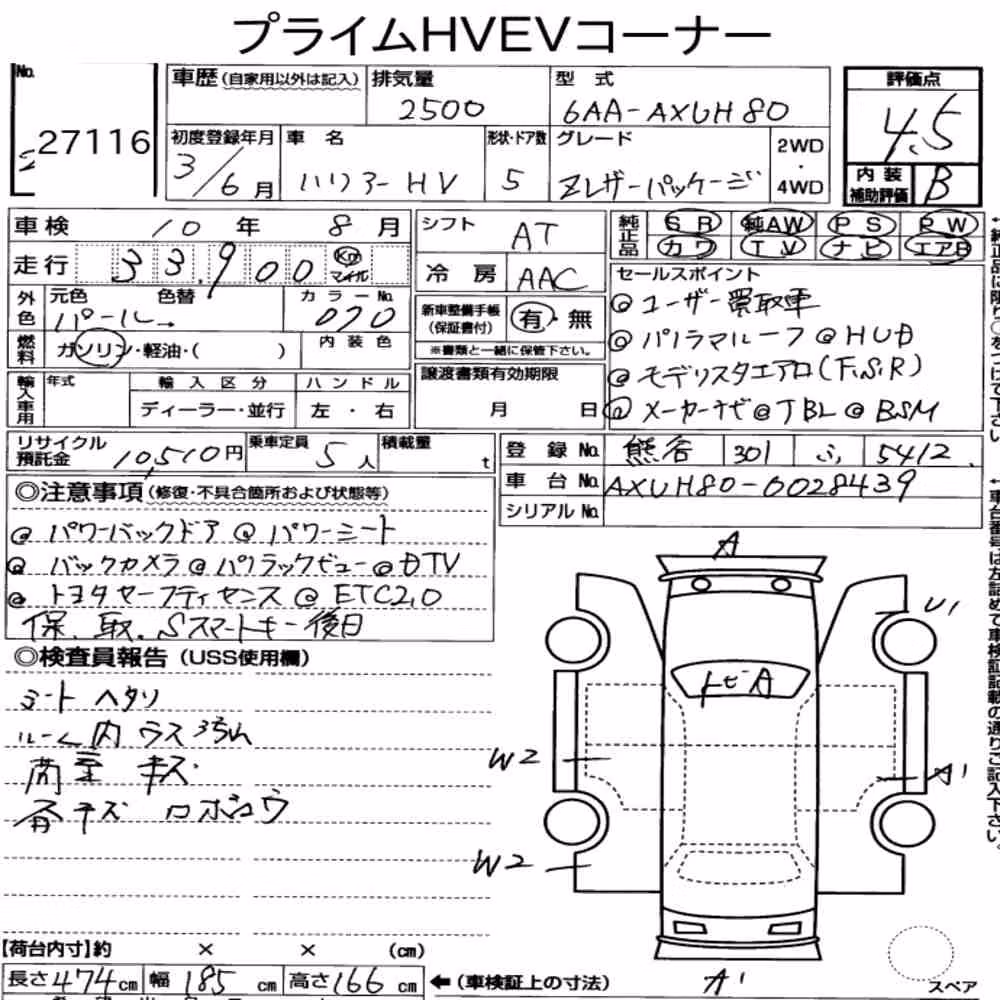 プライムHVEVコーナー
No. 27116
車歴(自家用以外は記入) 排気量 2500 型式 6AA-AXUH80
評価点 4.5
初度登録年月 3/6月 車名 ハリアーHV 形状・ドア数 5 グレード Zレザーパッケージ 2WD・4WD
内装補助評価 B
車検 10年 8月
シフト AT
純正品 SR 純AW PS PW
カワ TV ナビ エアB
走行 33,900 Km マイル
冷房 AAC
セールスポイント
@ユーザー買取車
@パノラマルーフ @HUD
@モデリスタエアロ(F.S.R)
@メーカーナビ@JBL@BSM
外色 元色 パール 色替 カラーNo. 070
新車整備手帳(保証書付) 有・無
※書類と一緒に保管下さい。
燃料 ガソリン・軽油・( ) 内装色
譲渡書類有効期限 月 日
輸入車用 年式 輸入区分 ハンドル
ディーラー・並行 左・右
リサイクル預託金 10,510円 乗車定員 5人 積載量 t
登録No. 熊谷 301 ふ 5412
車台No. AXUH80-0028439
シリアルNo.
◎注意事項(修復・不具合箇所および状態等)
@パワーバックドア@パワーシート
@バックカメラ@パノラックビュー@DTV
@トヨタセーフティセンス@ETC2.0
保、取、Sスマートキー後日
◎検査員報告(USS使用欄)
シートヘタリ
ルーム内ラスろん
荷室キズ
各キズ コボコウ
A
U1
トビA
W2
A1
W2
A1
スペア
【荷台内寸】約 × × (cm)
長さ474cm 幅185cm 高さ166cm ←(車検証上の寸法)